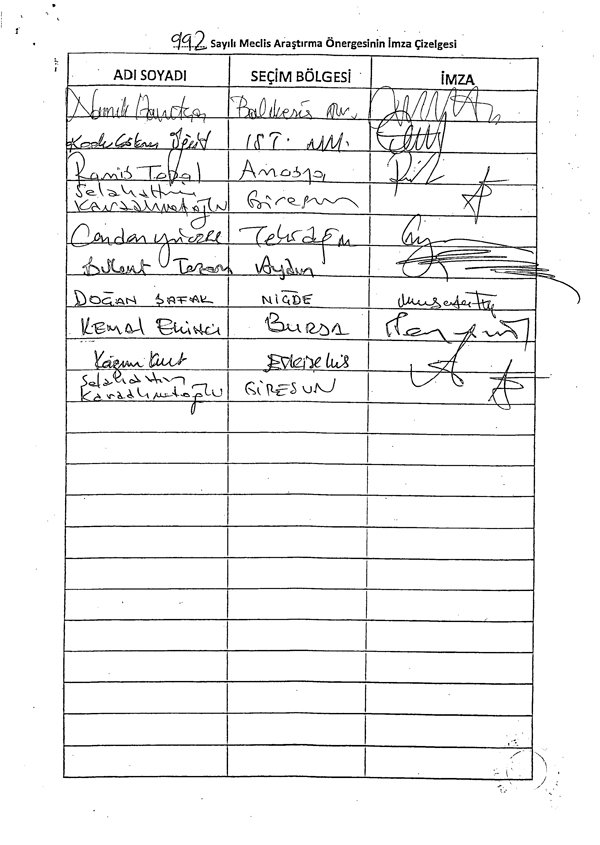 992 Sayılı Meclis Araştırma Önergesinin İmza Çizelgesi
ADI SOYADI SEÇİM BÖLGESİ İMZA
Namık Havutça Balıkesir Mv.
Kadir Gökmen Öğüt İST. MV.
Ramis Topal Amasya
Selahattin
Karaahmetoğlu Giresun
Candan Yüceer Tekirdağ
Bülent Tezcan Aydın
DOĞAN ŞAFAK NİĞDE
KEMAL EKİNCİ BURSA
Kazım Kurt Eskişehir
Selahattin
Karaahmetoğlu GİRESUN